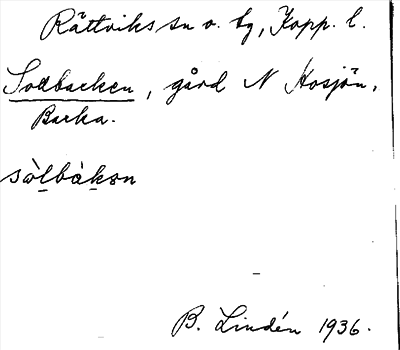 Rättviks sn o. tg, Kopp. l.
Solbacken, gård N Hosjön,
Backa.
sòlbàkən
B. Lindén 1936.